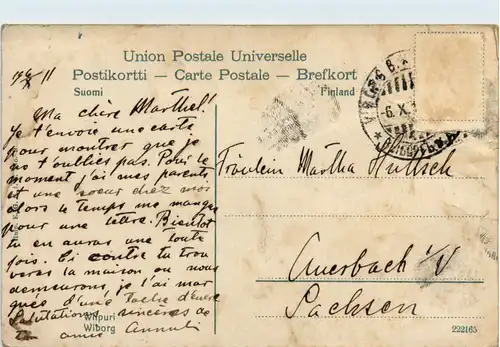 Union Postale Universelle
Postikortti — Carte Postale — Brefkort
Suomi
Finland
11
Ma chère Marthel!
Je t'envoie une carte
pour montrer que je
ne t'oublies pas. Pour le
moment j'ai mes parents
et une soeur chez moi
alors le temps me manque
pour une lettre. Bientot
tu en auras une toute
fois. Ci contre tu trou
veras la maison ou nous
demeurons, je l'ai mar
quée d'une tache d'encre
Salutations sincères de
amie
Wiipuri
Wiborg
-6.X.
Fräulein Martha Hüttsch
Auerbach i/V
Sachsen
222165